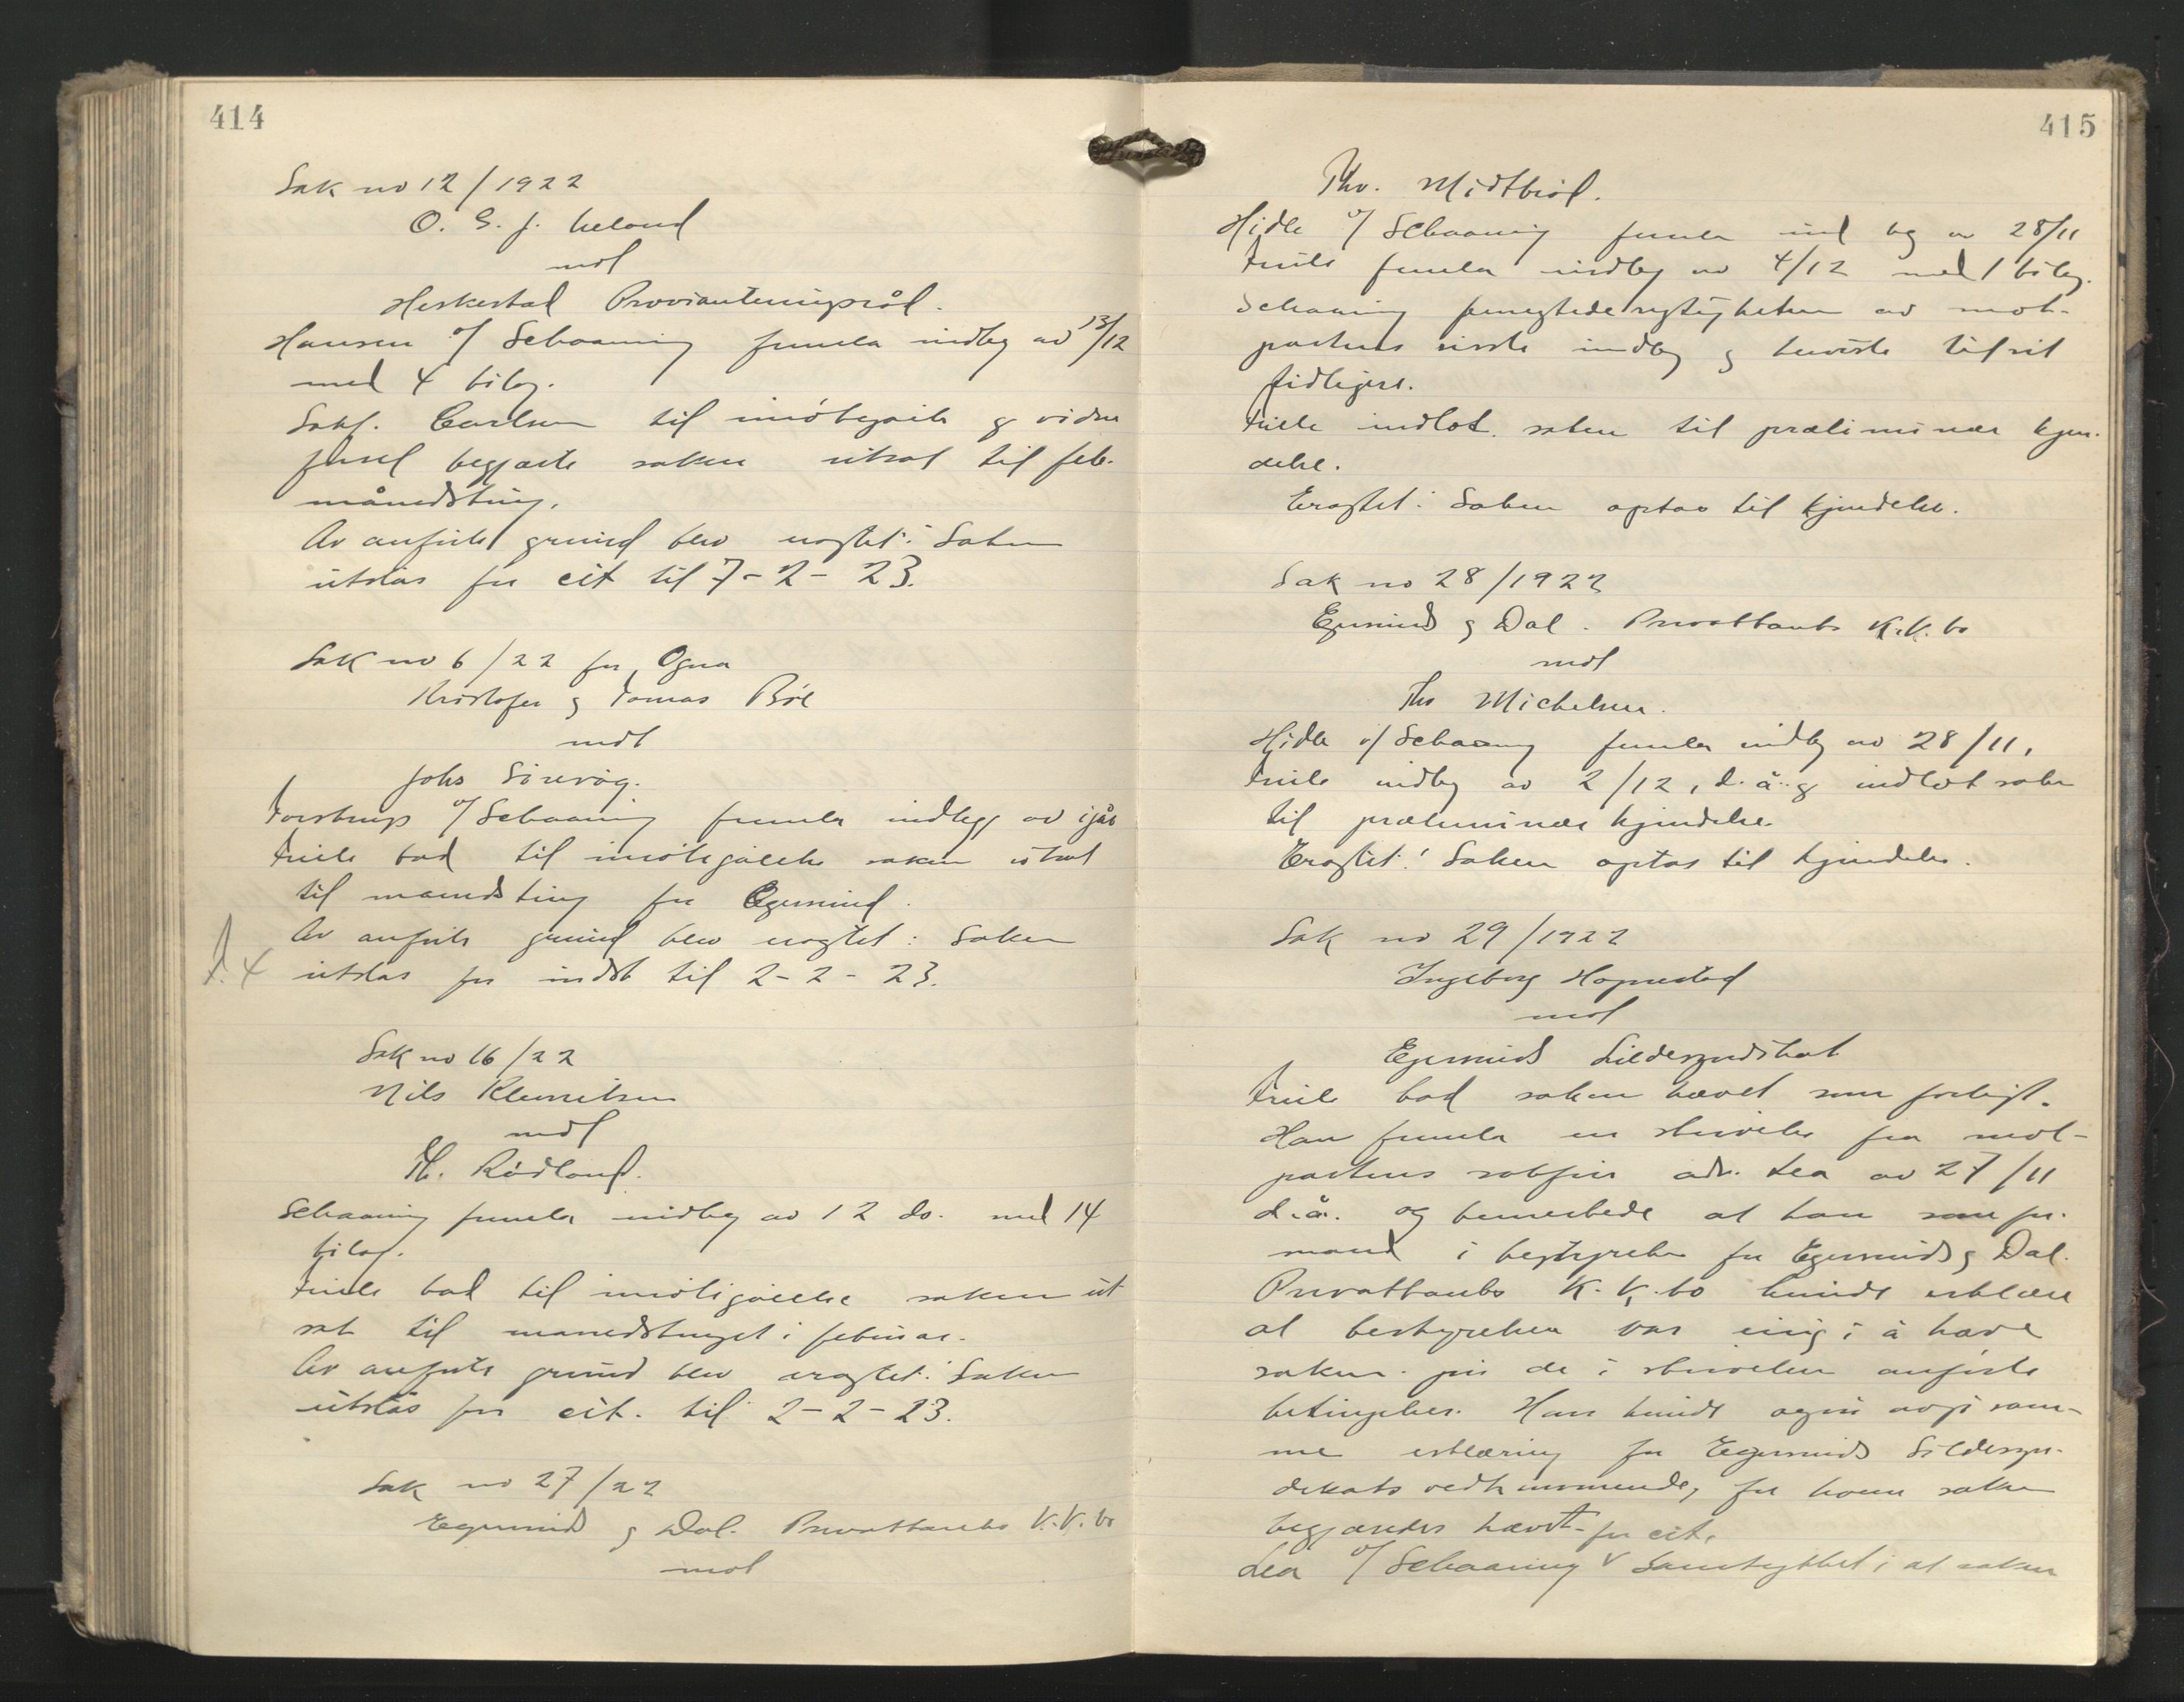 414
Sak no 12/1922
O. G. J. Ueland
mot
Heskestad Provianteringsråd.
Hansen o/ Schaaning fremla indleg av 13/12
med 4 bilag.
Sakf. Carlsen til imötegåelse og vidne
førsel begjærte saken utsat til feb.
månedsting.
Av anførte grund blev eragtet: Saken
utståes for cit til 7-2-23.
Sak no 6/22 for Ogna
Kristofer og Tomas Böe
mot
Johs Sirevåg.
Torstrup o/ Schaaning fremla indlegg av igår
bad til imötegåelse saken utsat
til maandsting for Egersund.
Av anførte grund blev eragtet: Saken
utståes for indst til 2-2-23.
Sak no 16/22
Nils Klemetsen
mot
Th. Rödland.
Schaaning fremla indleg av 12 ds. med 14
bilag.
bad til imötegåelse saken ut
sat til maanedstinget i februar.
Av anførte grund blev eragtet: Saken
utståes for cit. til 2-2-23.
Sak no 27/22
Egersund og Dal. Privatbanks K.K. bo
mot
415
Thv. Midtböe.
Hidle o/ Schaaning fremla indleg av 28/11
fremla indleg av 4/12 med 1 bilag.
Schaaning benegtede rigtigheten av mot-
partens siste indleg og henviste til sit
tidligere.
indlot saken til præliminær kjen-
delse.
Eragtet: Saken optas til kjendelse.
Sak no 28/1922
Egersund og Dal. Privatbanks K.K. bo
mot
Thv Michelsen.
Hidle o/ Schaaning fremla indleg av 28/11,
indleg av 2/12, d.å. og indlot saken
til præliminær kjendelse
Eragtet: Saken optas til kjendelse.
Sak no 29/1922
Ingeborg Hopnestad
mot
Egersunds Sildesyndikat
bad saken hævet som forligt.
Han fremla en skrivelse fra mot-
partens sakfører adv. Lea av 27/11
d.å. og bemerkede at han som for-
mand i bestyrelsen for Egersund og Dal.
Privatbanks K.K. bo kunde erklære
at bestyrelsen var enig i å hæve
saken på de i skrivelsen anförte
betingelser. Han kunde også avgi sam-
me erklæring for Egersunds Sildesyn-
dikats vedkommende, for hvem saken
begjæredes hævet for cit.
Lea o/ Schaaning samtykket i at saken